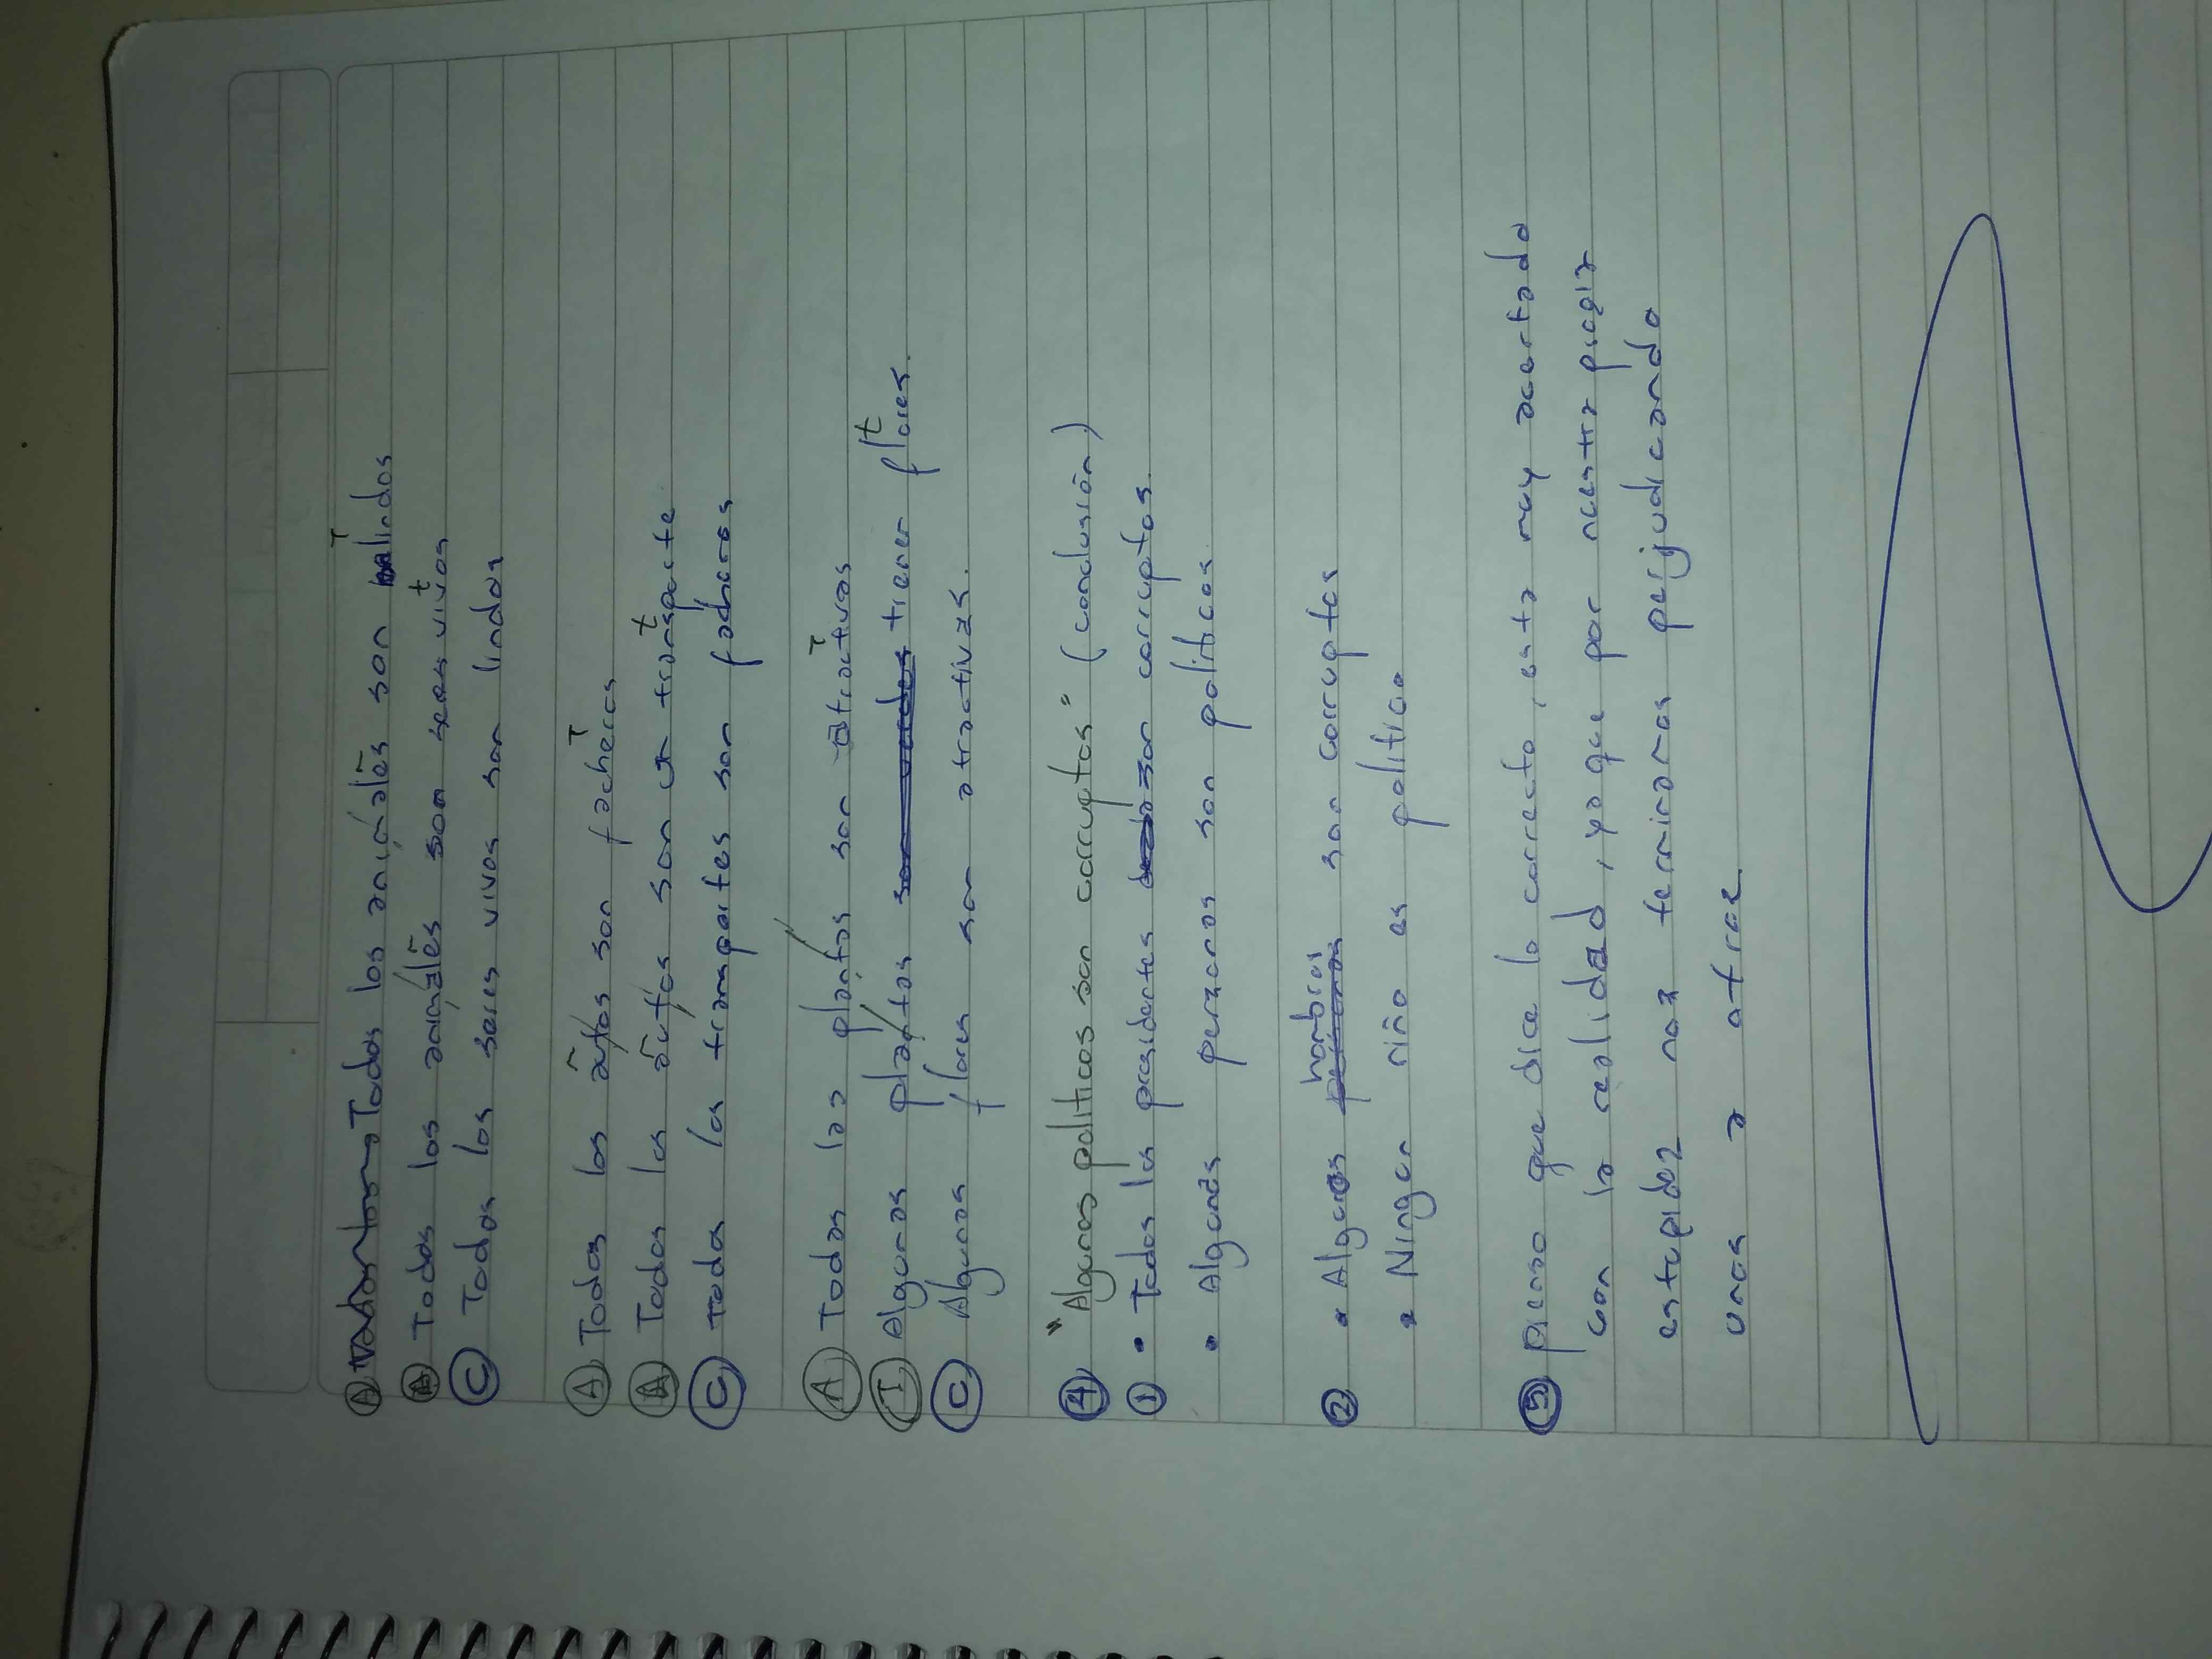 Ⓐ Todos los animales son lindos
Ⓐ Todos los animales son seres vivos
Ⓒ Todos los seres vivos son lindos
Ⓐ Todos los autos son facheros
Ⓐ Todos los autos son un transporte
Ⓒ todos los transportes son facheros
Ⓐ Todas las plantas son atractivas
Ⓘ Algunas plantas tienen flores.
Ⓒ Algunas flores son atractivas.
④ "Algunos politicos son corruptos" (conclusión)
① • Todos los presidentes son corruptos.
• Algunas personas son politicas
② • Algunos hombres son corruptos
• Ningun niño es politico
⑤ pienso que dice lo correcto, esta muy acertado
con la realidad, ya que por nuestra propia
estupidez nos terminamos perjudicando
unos a otros